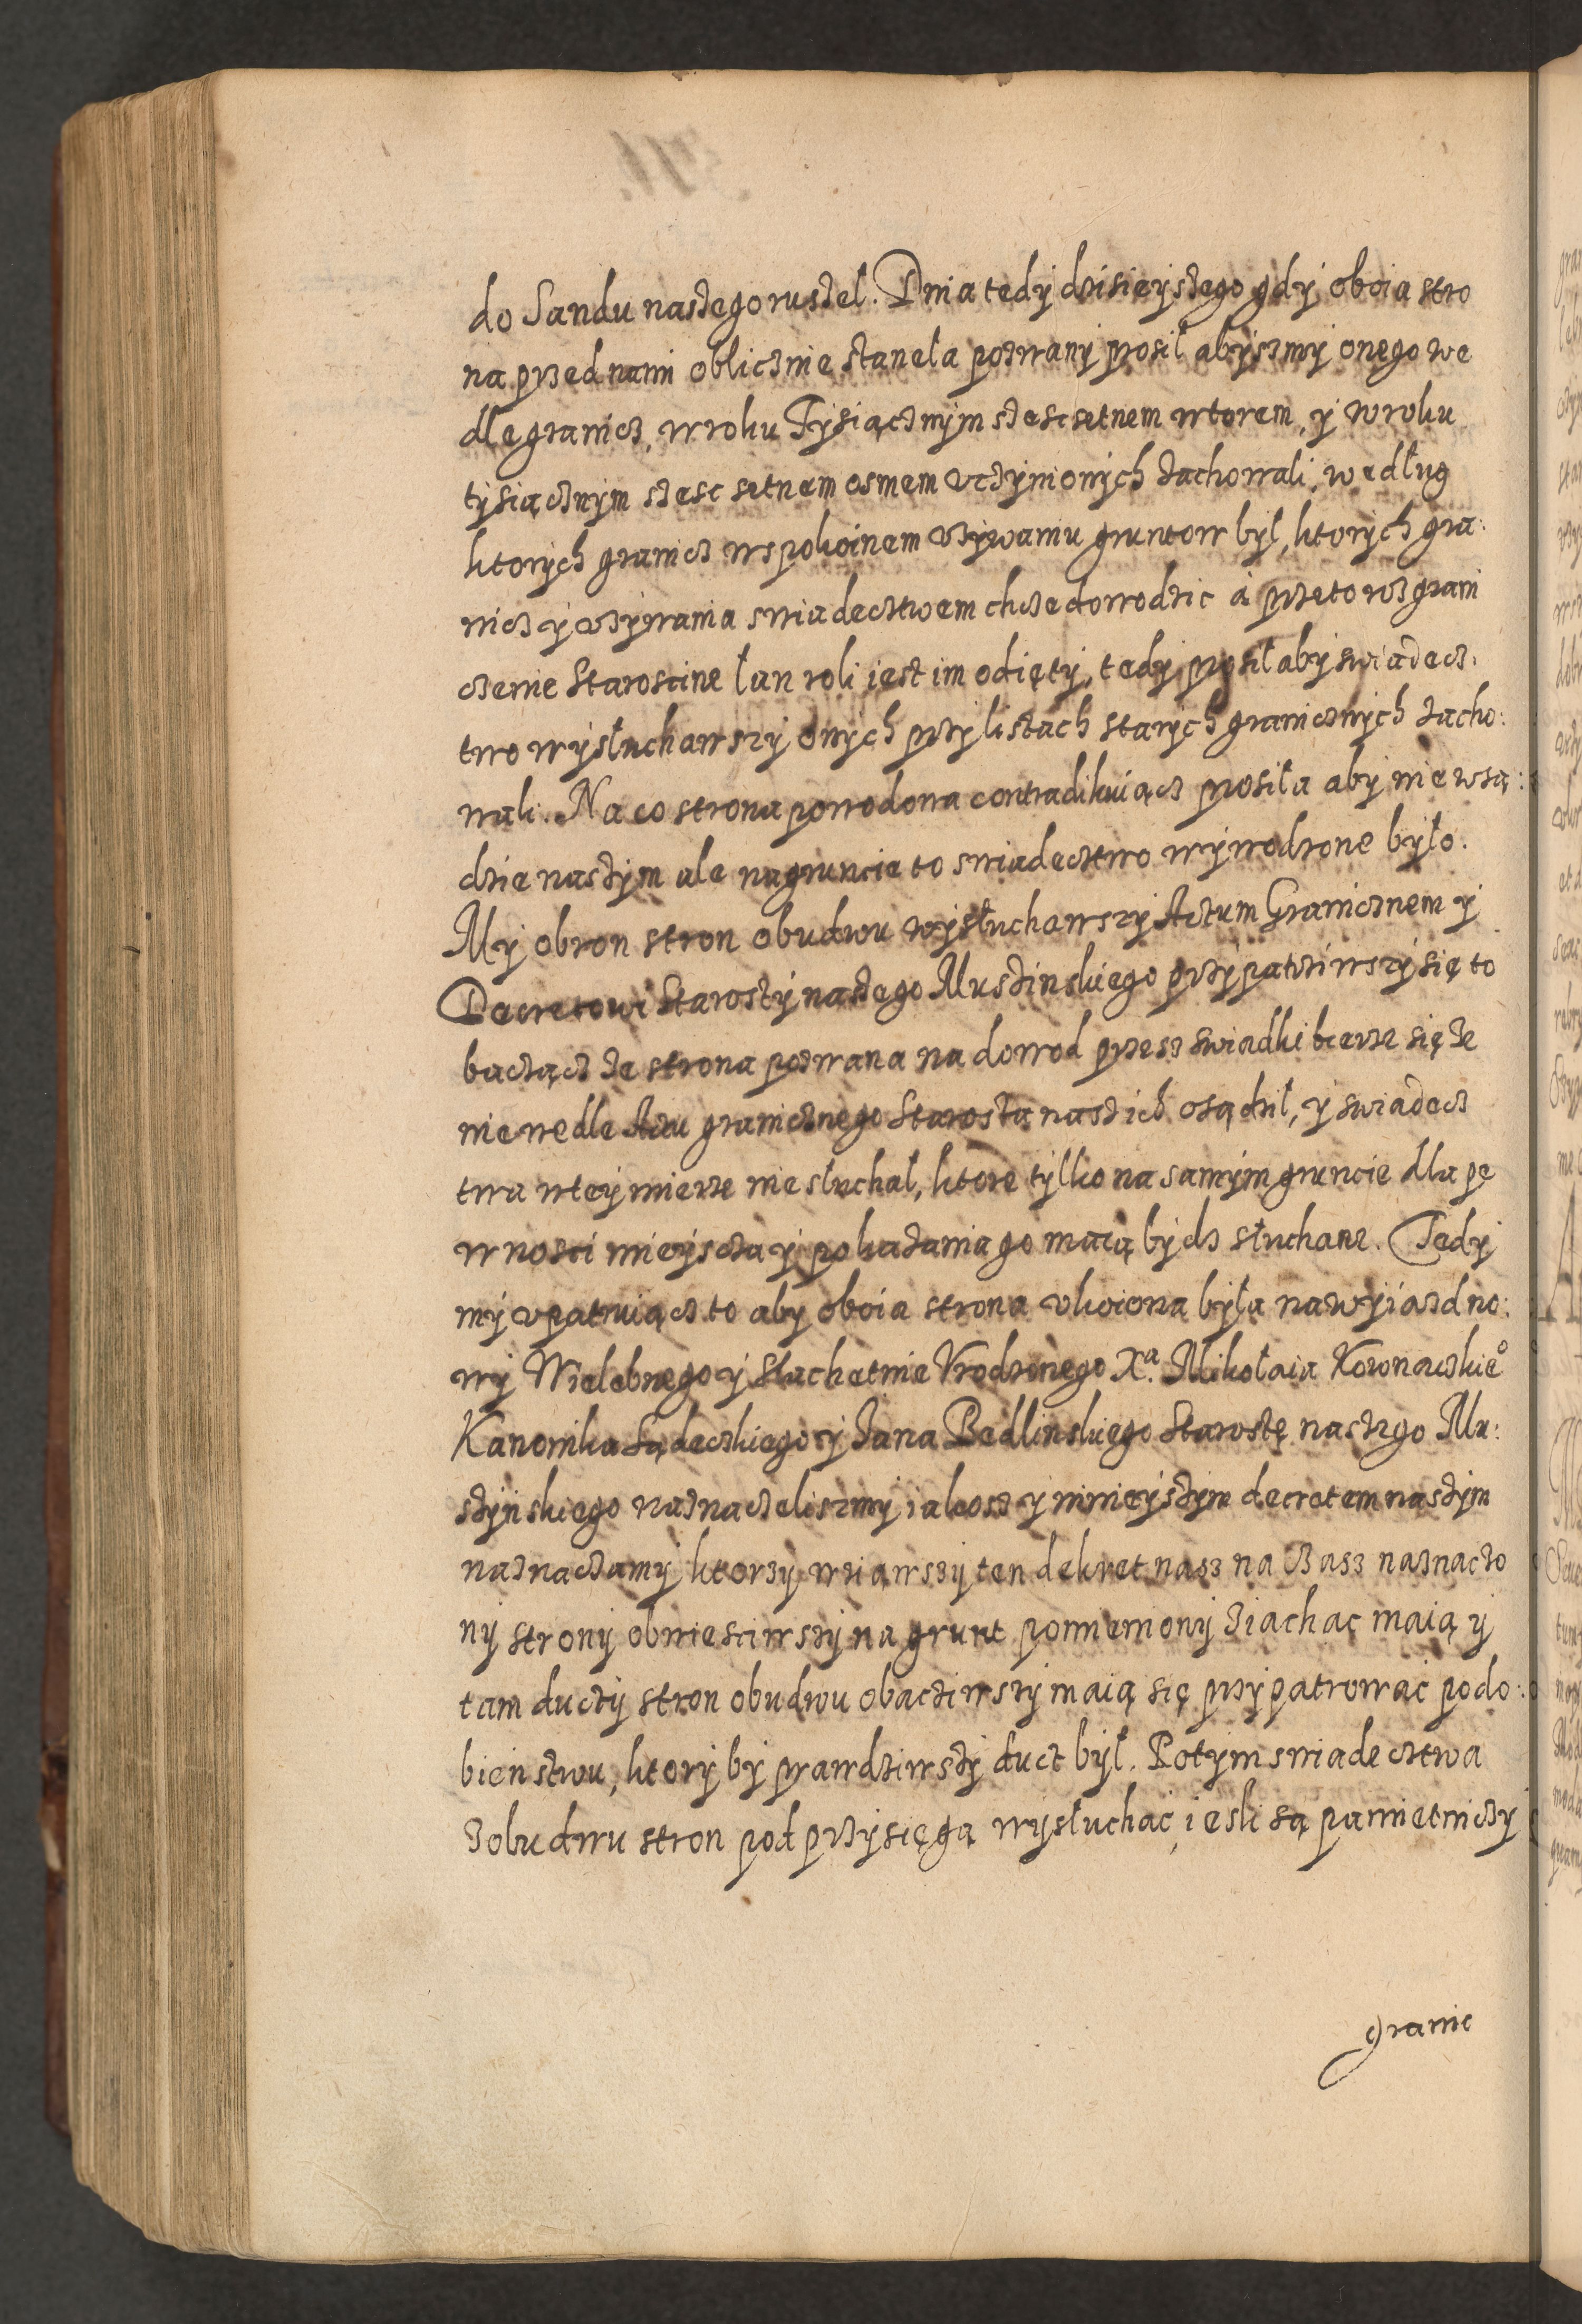 do Sandu naszego ruszel. Dnia tedÿ dzisieÿszego gdÿ oboia stro
na przed nami oblicznie stanęła pozwanÿ prosil abÿszmÿ onego we
dle granicz, w roku Tÿsiącznÿm szescsetnem wtorem, ÿ w roku
tÿsiącznÿm szesc setnem osmem uczÿnionÿch zachowali, według
ktorÿch granicz w spokoinem uzÿwaniu gruntow bÿl, ktorÿch gra:
nicz ÿ uzÿwania swiadecztwem chcze dowodzic a przeto wzgrani
czenie Staroscine łan roli iest im odiętÿ, tedÿ prosił abÿ swiadecz:
two wÿsłuchawszÿ onÿch przÿ listach starÿch granicznÿch zacho:
wali. Na co strona powodowa contradikuiącz prosiła abÿ nie w są:
dzie naszÿm ale na gruncie to swiadecztwo wÿwodzone bÿło.
Mÿ obron stron obudwu wÿsłuchawszÿ Actum Granicznem ÿ
Decretowi Starostÿ naszego Muszinskiego przÿpatrziwszÿ się to
bacząz ze strona pozwana na dowod przesz swiadki bierze się ze
nie wedle Actu granicznego Starosta nasz ich osądzil, ÿ swiadecz
twa w teÿ mierze nie słuchał, ktore tÿlko na samÿm gruncie dla pe
wnosci mieÿscza ÿ pokazania go maią bÿdz słuchane. Tedÿ
mÿ upatruiącz to abÿ oboia strona ukoiona bÿła na wÿiazd no:
wÿ Wielebnego ÿ Slachetnie Vrodzonego Xª. Mikołaia Koronawskieº
Kanonika Sądeczkiego ÿ Jana Bedlinskiego Starostę naszego Mu:
szÿnskiego naznacżeliszmÿ iakosz ÿ ninieÿszÿm decretem naszÿm
naznaczamÿ ktorzÿ wziąwszÿ ten dekret nasz na czasz naznaczo
nÿ stronÿ obwiesciwszÿ na grunt pomienionÿ ziachac maią ÿ
tam ductÿ stron obudwu obacziwszÿ maią się przÿpatrowac podo:
bienstwu, ktorÿ bÿ prawdziwszÿ duct bÿł. Potÿm swiadecztwa
z obudwu stron pod przÿsięgą wÿsłuchac, iesli są pamietniczÿ
granic